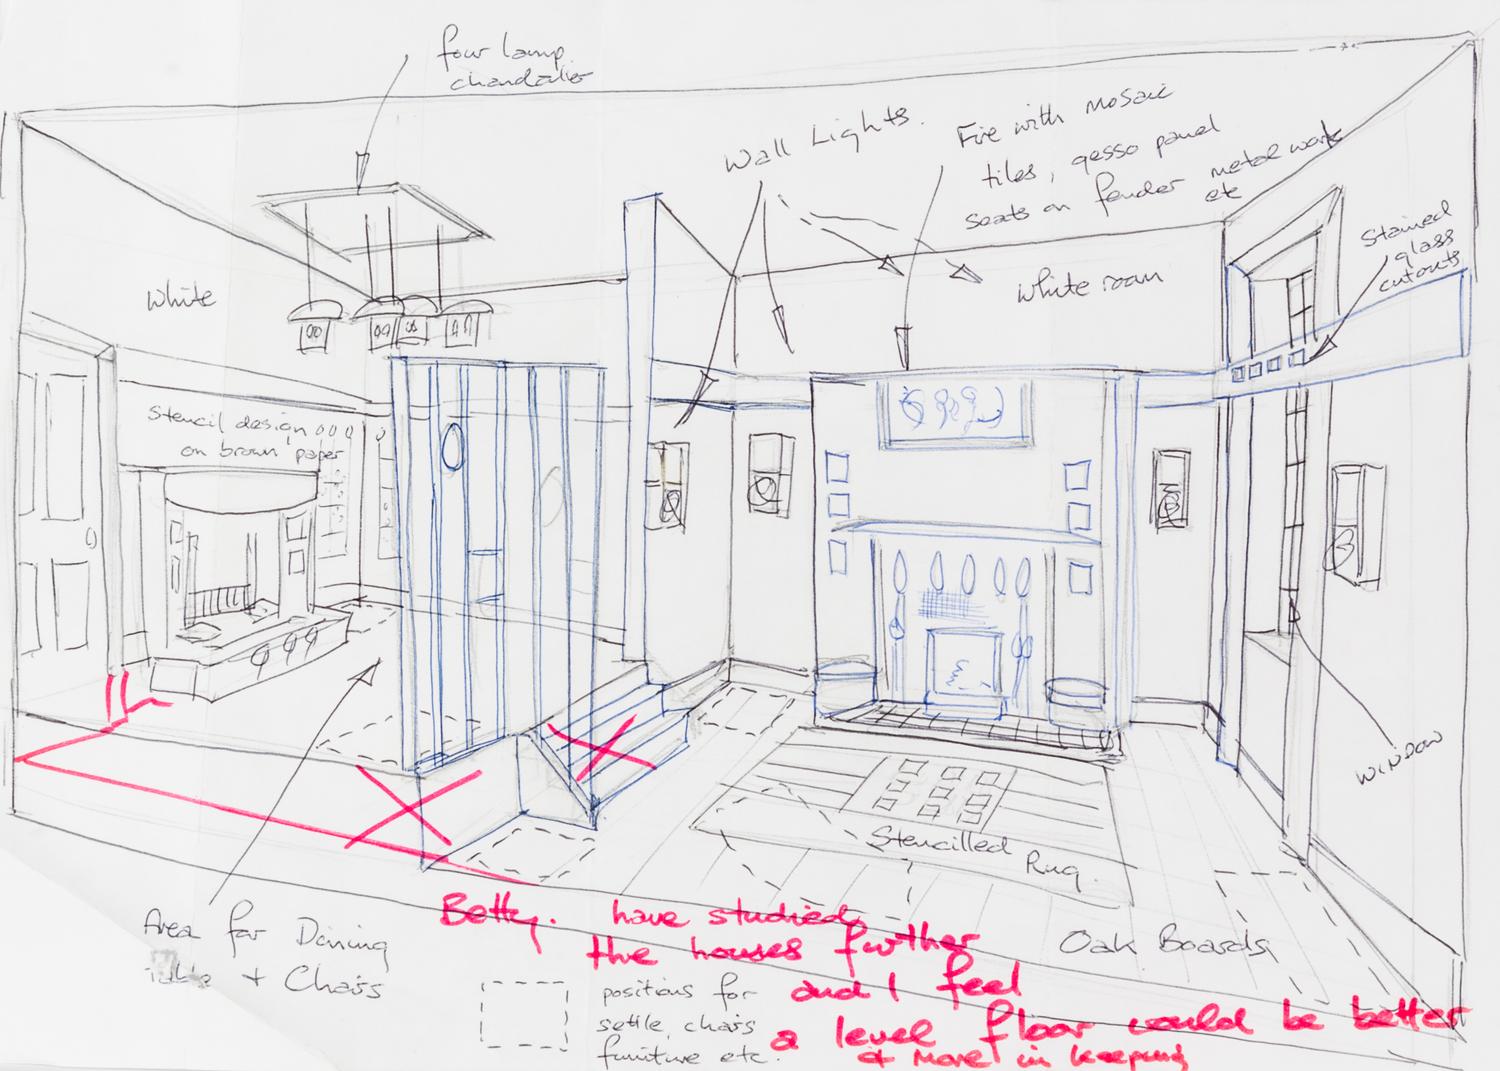 four lamp
chandalier
Wall Lights.
Fire with mosaic
tiles, gesso panel
seats on fender metal work
etc
Stained
glass
cutouts
White
White room
Stencil design
on brown paper
WINDOW
Stencilled Rug.
Oak Boards
Area for Dining
table + Chairs
positions for
settle, chairs
funiture etc.
Betty. have studied
the houses further
and I feel
a level floor would be better
& more in keeping